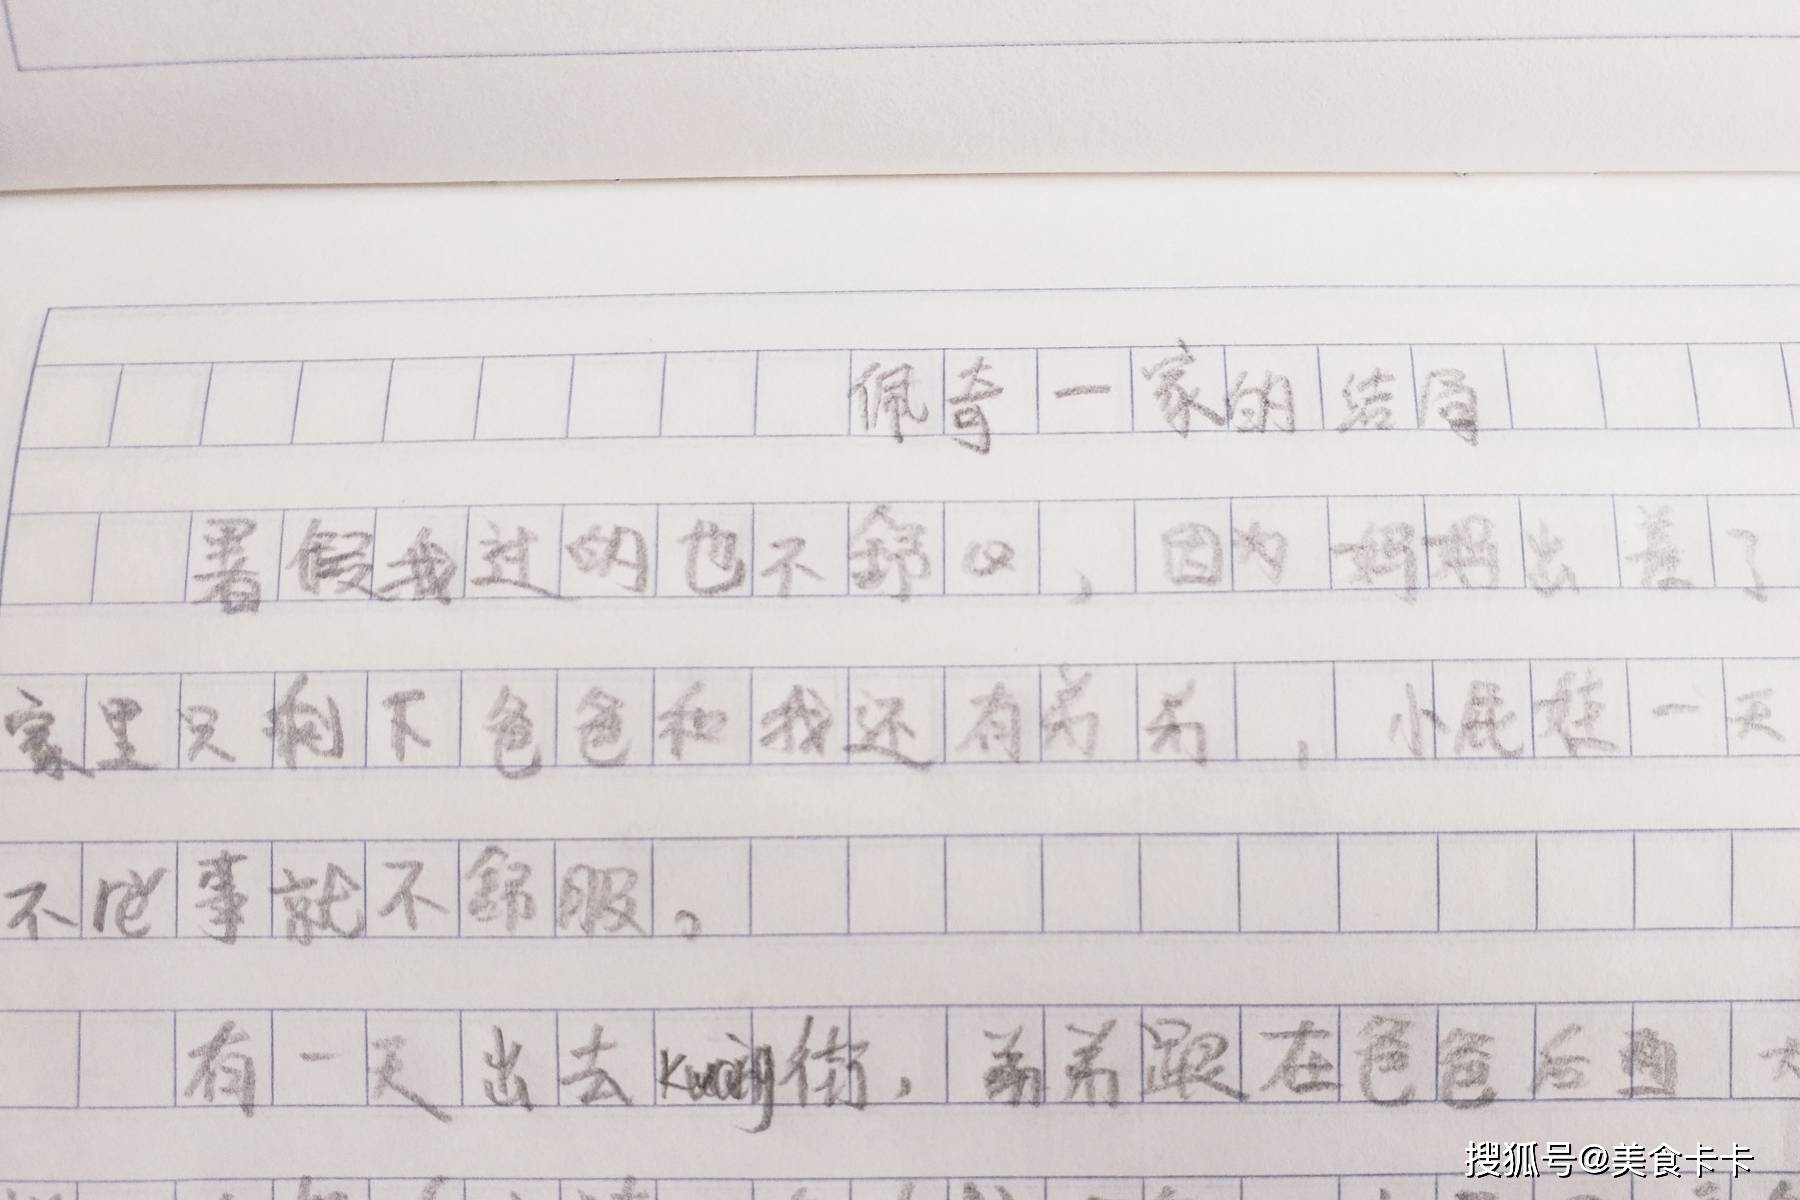 佩奇一家的结局
暑假我过的也不舒心,因为妈妈出差了
家里只剩下爸爸和我还有弟弟,小屁孩一天
不吃事就不舒服。
有一天出去kuang街,弟弟跟在爸爸后面大
搜狐号@美食卡卡